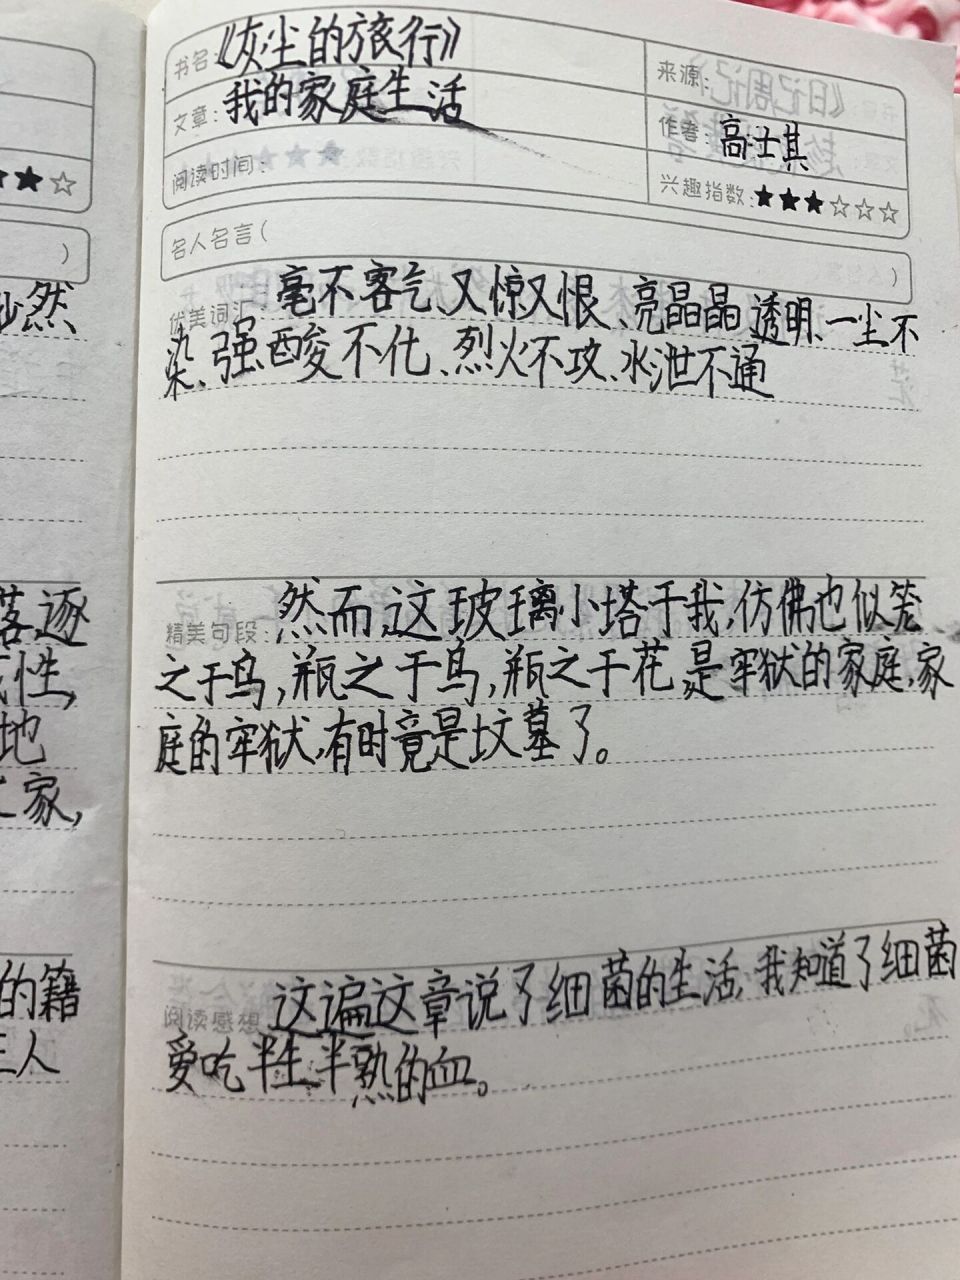 书名:《灰尘的旅行》
来源:
文章:我的家庭生活
作者 高士其
阅读时间:
兴趣指数:★★★☆☆☆
★☆
名人名言( )
)
优美词汇: 毫不客气、又惊又恨、亮晶晶、透明、一尘不
染、强酸不化、烈火不攻、水泄不通
然
精美句段: 然而,这玻璃小塔于我,仿佛也似笼
之于鸟,瓶之于鸟,瓶之于花,是牢狱的家庭,家
庭的牢狱,有时竟是坟墓了。
落逐
性,
地
家,
阅读感想 这遍这章说了细菌的生活,我知道了细菌
爱吃半生半熟的血。
的籍
三人